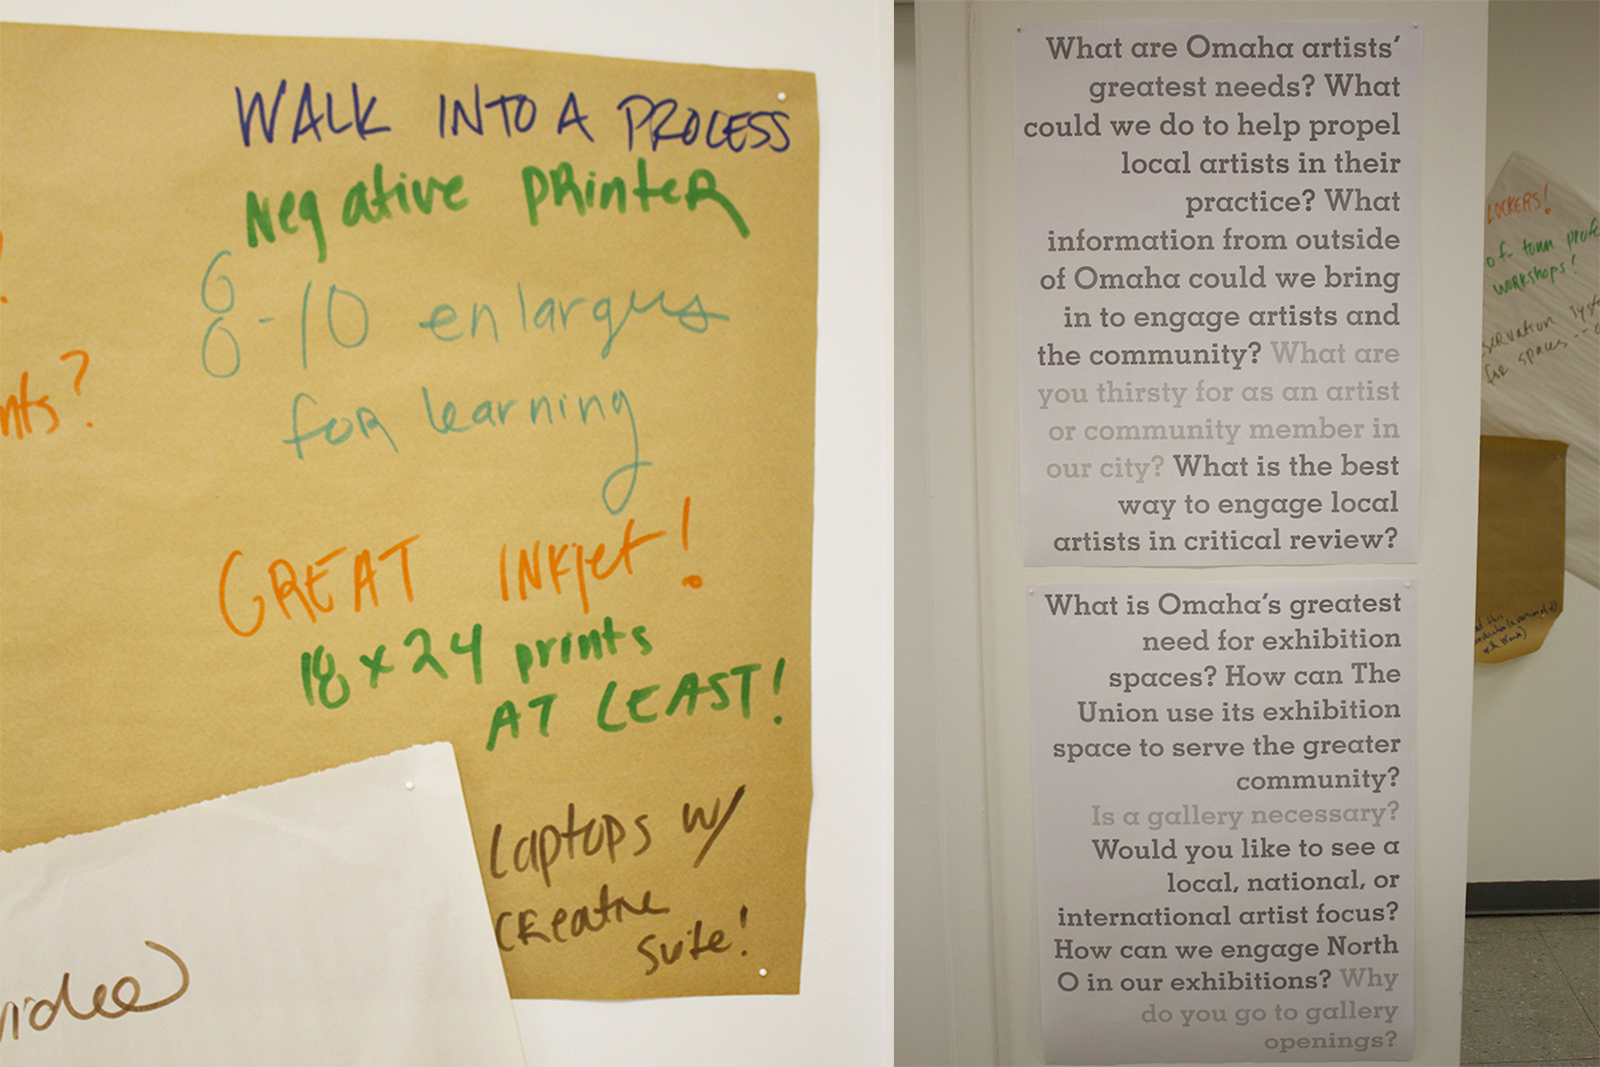 WALK INTO A PROCESS
Negative printer
6
8-10 enlargers
for learning
GREAT INKjet!
18 x 24 prints
AT LEAST!
Laptops w/
creative
suite!
?
nts?
What are Omaha artists'
greatest needs? What
could we do to help propel
local artists in their
practice? What
information from outside
of Omaha could we bring
in to engage artists and
the community? What are
you thirsty for as an artist
or community member in
our city? What is the best
way to engage local
artists in critical review?
What is Omaha's greatest
need for exhibition
spaces? How can The
Union use its exhibition
space to serve the greater
community?
Is a gallery necessary?
Would you like to see a
local, national, or
international artist focus?
How can we engage North
O in our exhibitions? Why
do you go to gallery
openings?
LOCKERS!
of-town
workshops!
for spaces